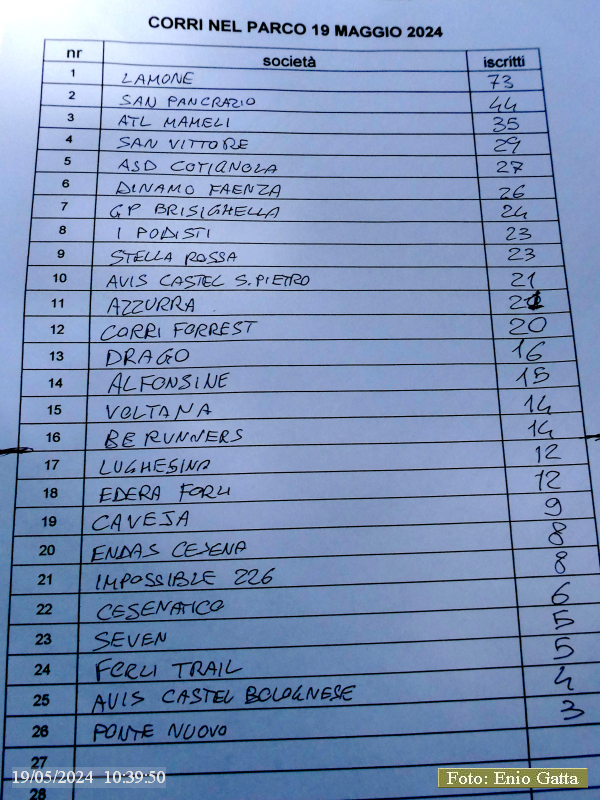 CORRI NEL PARCO 19 MAGGIO 2024
nr società iscritti
1 LAMONE 73
2 SAN PANCRAZIO 44
3 ATL MAMELI 35
4 SAN VITTORE 29
5 ASD COTIGNOLA 27
6 DINAMO FAENZA 26
7 GP BRISIGHELLA 24
8 I PODISTI 23
9 STELLA ROSSA 23
10 AVIS CASTEL S. PIETRO 21
11 AZZURRA
12 CORRI FORREST 20
13 DRAGO 16
14 ALFONSINE 15
15 VOLTANA 14
16 BE RUNNERS 14
17 LUGHESINA 12
18 EDERA FORLI 12
19 CAVEJA 9
20 ENDAS CESENA 8
21 IMPOSSIBLE 226 8
22 CESENATICO 6
23 SEVEN 5
24 FORLI TRAIL 5
25 AVIS CASTEL BOLOGNESE 4
26 PONTE NUOVO 3
27
28
19/05/2024 10:39:50
Foto: Enio Gatta